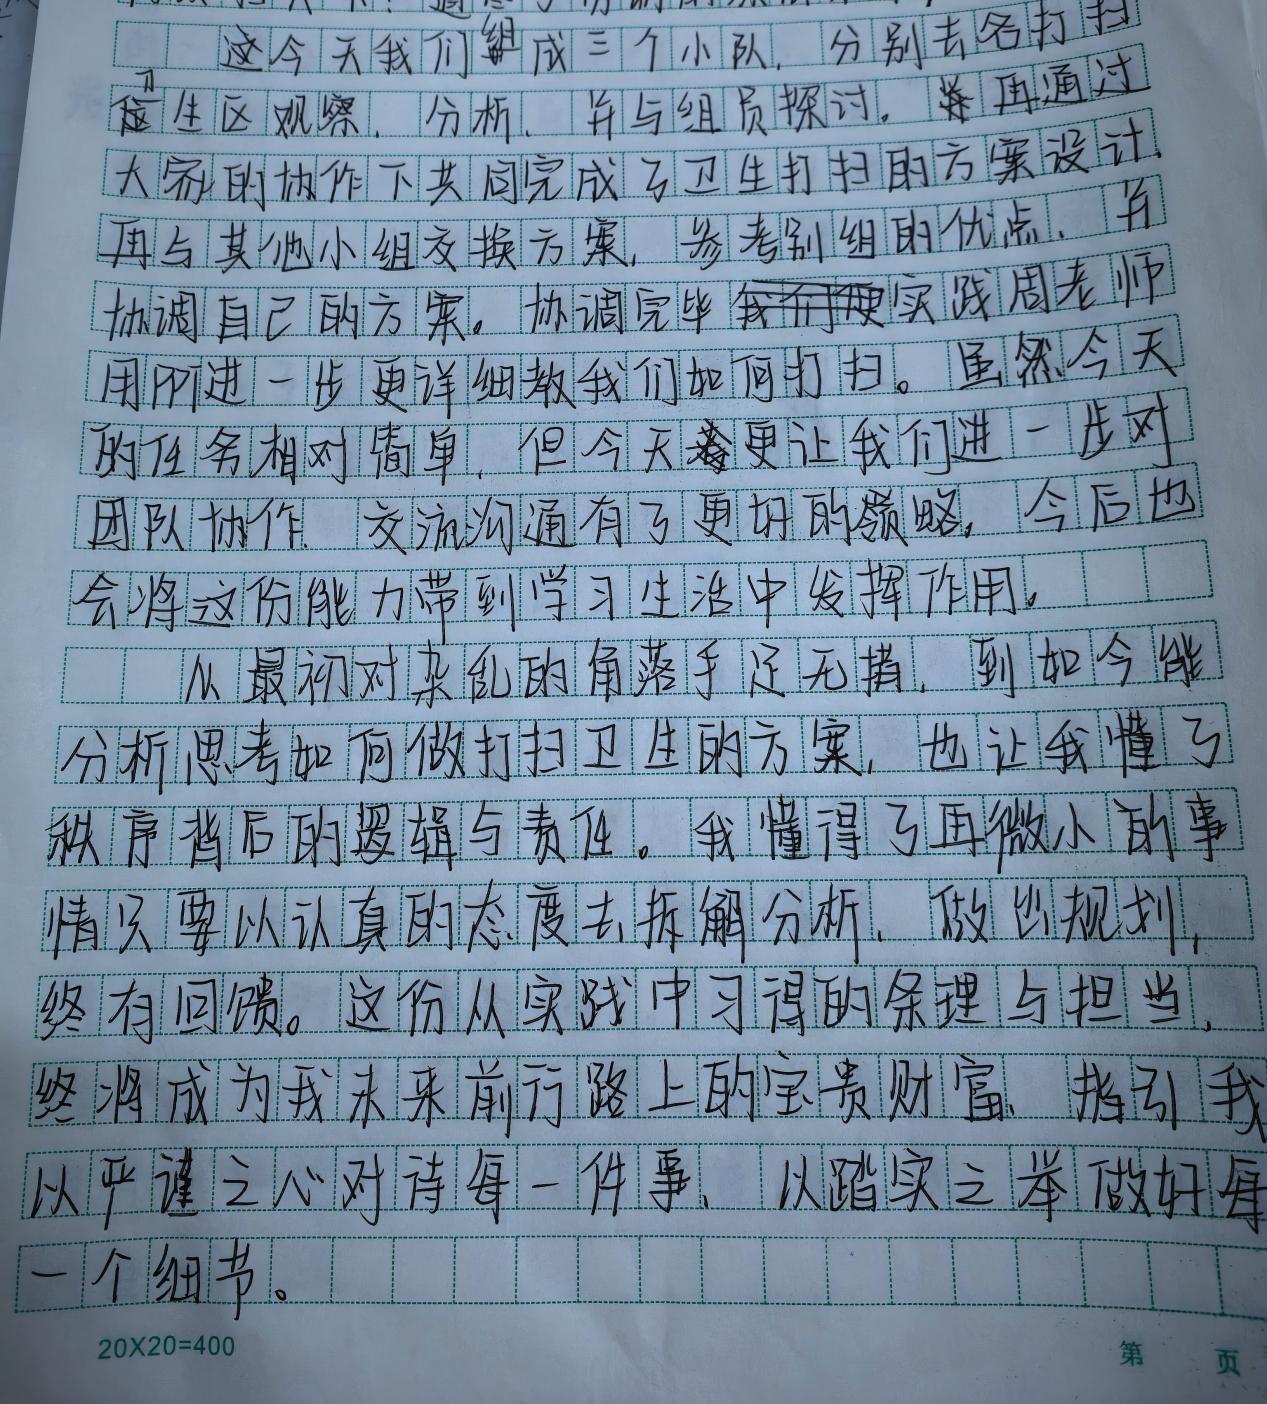 这今天我们组成三个小队，分别去各打扫
卫生区观察，分析，并与组员探讨。再通过
大家的协作下共同完成了卫生打扫的方案设计，
再与其他小组交换方案，参考别组的优点，并
协调自己的方案。协调完毕实践周老师
用PPT进一步更详细教我们如何打扫。虽然今天
的任务相对简单，但今天更让我们进一步对
团队协作、交流沟通有了更好的领略，今后也
会将这份能力带到学习生活中发挥作用。
从最初对杂乱的角落手足无措，到如今能
分析思考如何做打扫卫生的方案，也让我懂了
秩序背后的逻辑与责任。我懂得了再微小的事
情只要以认真的态度去拆解分析、做出规划，
终有回馈。这份从实践中习得的条理与担当，
终将成为我未来前行路上的宝贵财富、指引我
以严谨之心对待每一件事、以踏实之举做好每
一个细节。
20X20=400
第 页